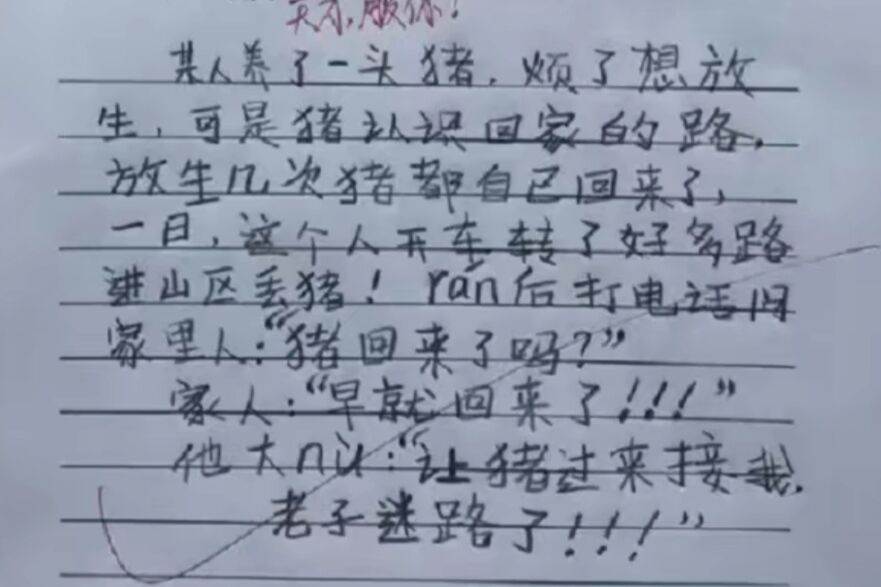 天才，服你！
某人养了一头猪，烦了想放
生，可是猪认识回家的路，
放生几次猪都自己回来了，
一日，这个人开车转了好多路
进山区丢猪！rán后打电话问
家里人："猪回来了吗？"
家人："早就回来了！！！"
他大nù："让猪过来接我，
老子迷路了！！！"